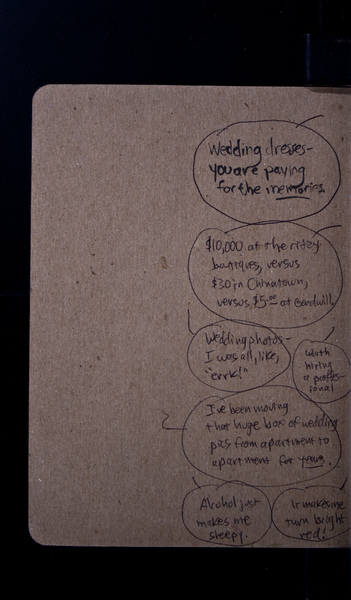 Wedding dresses-
you are paying
for the memories.
$10,000 at the ritzy
boutiques, versus
$30 in Chinatown,
versus $5.00 at
Wedding photos-
I was all, like,
"errk!"
Worth
hiring
a profes-
sional
I've been moving
that huge box of wedding
pics from apartment to
apartment for years.
Alcohol just
makes me
sleepy.
It makes me
turn bright
red!